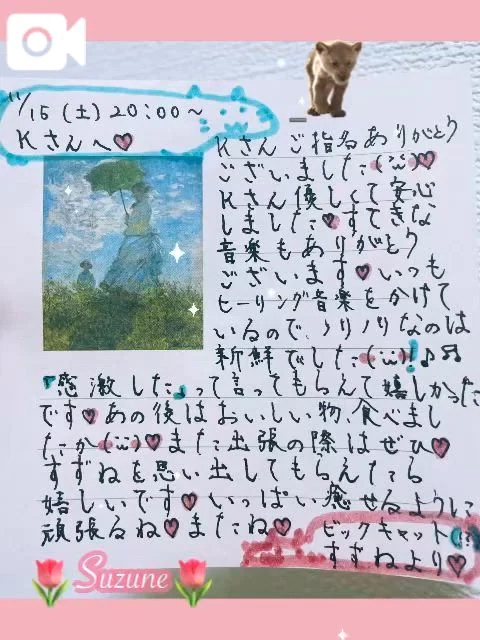 11/15(土)20:00〜
Kさんへ♥
Kさんご指名ありがとう
ございました(¨)♥
Kさん優しくて安心
しました♥すてきな
音楽もありがとう
ございます♥いつも
ヒーリング音楽をかけて
いるので、ノリノリなのは
新鮮でした(¨)!♪♫
『感激した』って言ってもらえて嬉しかった
です♥あの後はおいしい物、食べまし
たか(¨)♥また出張の際はぜひ♥
すずねを思い出してもらえたら
嬉しいです♥いっぱい癒せるように
頑張るね♥またね♥
ビックキャット!?
すずねより♥
Suzune